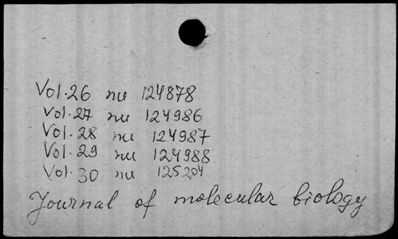 Vol.26 nu 124878
Vol.27 nu 124986
Vol.28 nu 124987
Vol.29 nu 124988
Vol.30 nu 125204
Journal of molecular biology